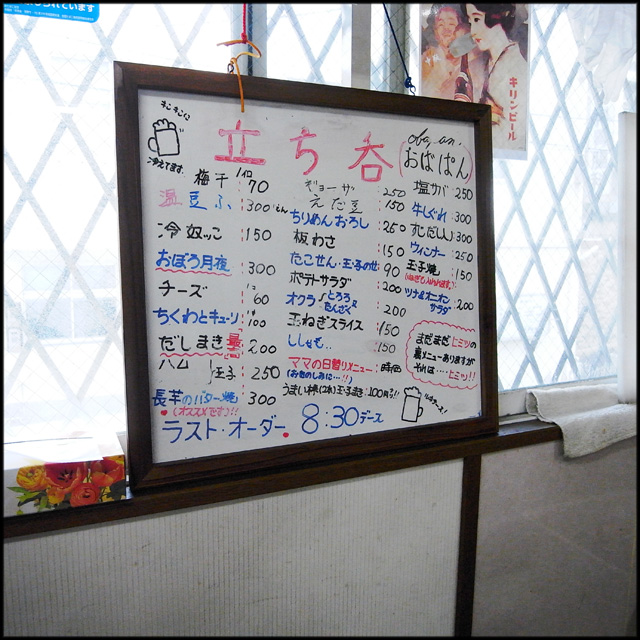 キリンビール
冷えてます。
立ち呑
おばぁん
梅干 1ケ 70
温豆ふ 300
冷奴っこ 150
おぼろ月夜 300
チーズ 60
ちくわとキューリ 100
だしまき 200
ハム 玉子 250
長芋のバター焼 300
(オススメです)!!
ギョーザ 250
えだ豆 150
ちりめんおろし 250
板わさ 150
たこせん・玉子のせ 90
ポテトサラダ 200
オクラ/とろろ たんざく 200
玉ねぎスライス 150
ししゃも.. 150
ママの日替りメニュー: 時価
(お楽しみに…!!)
塩サバ 250
牛しぐれ 300
300
ウィンナー 250
玉子焼 150
ツナ&オニオンサラダ 200
まだまだヒミツの
裏メニューありますが
それは…ヒミツ!!
ラスト・オーダー 8:30デース